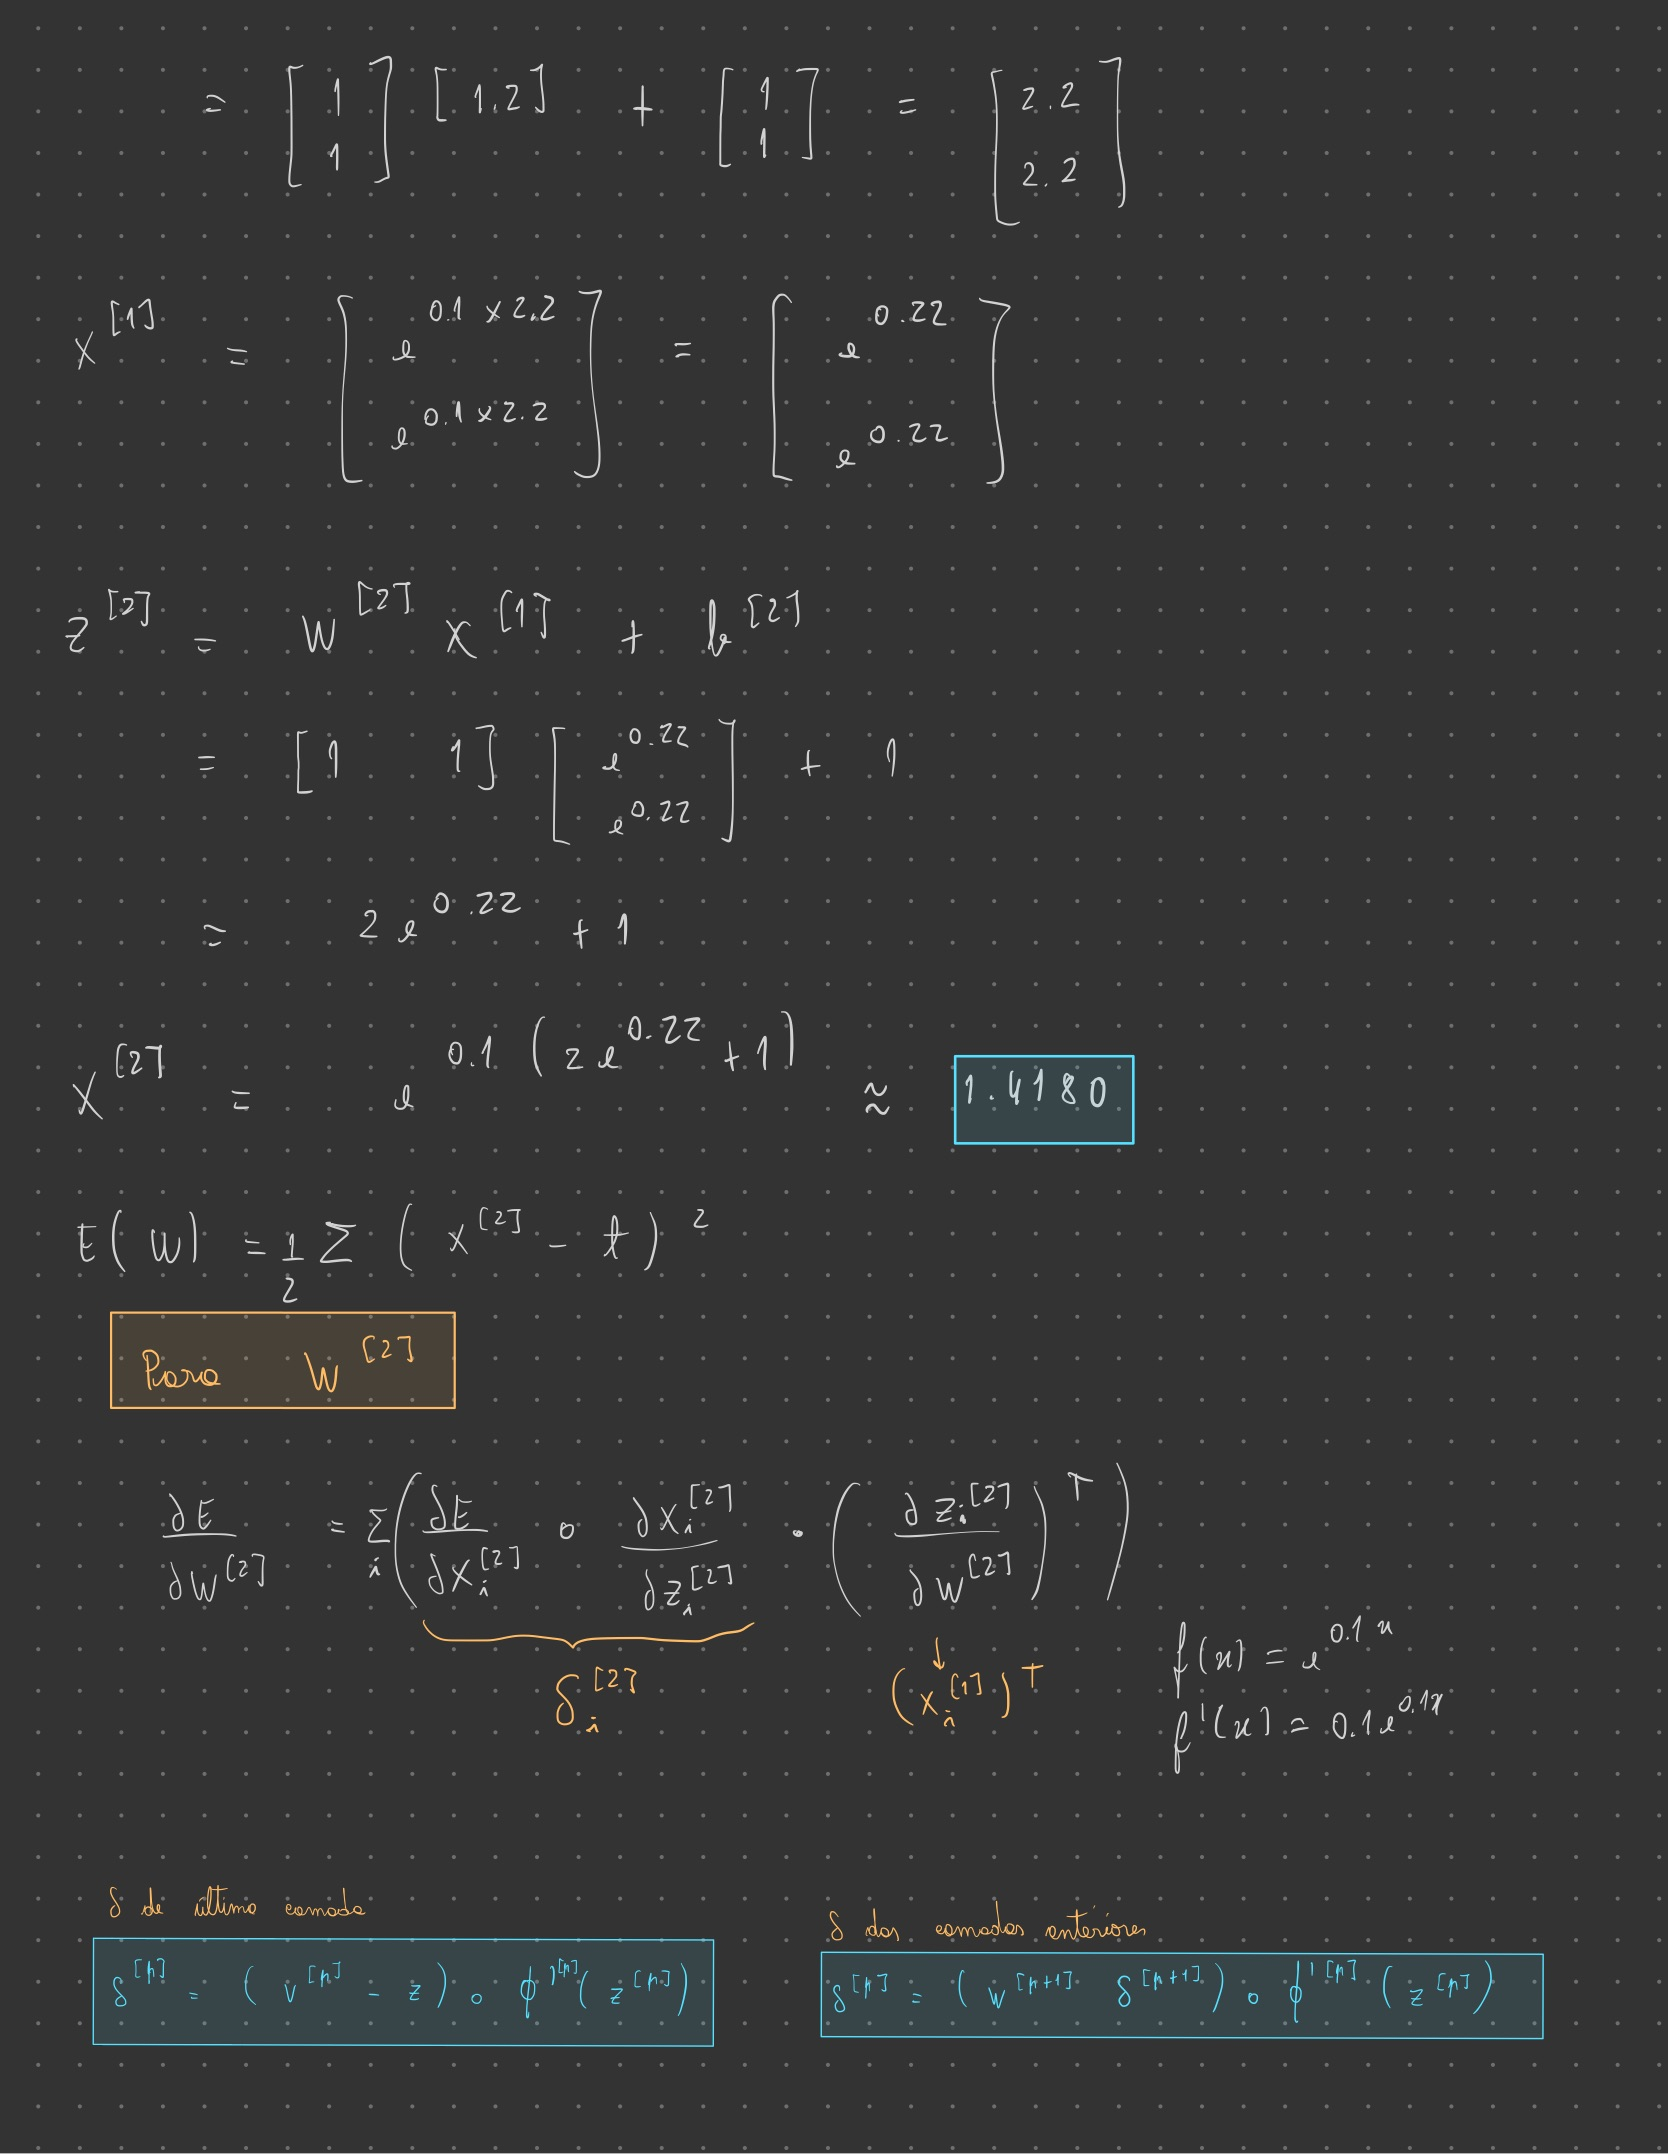 = [ 1 1 ] [ 1.2 ] + [ 1 1 ] = [ 2.2 2.2 ]
x^[1] = [ e^0.1 x 2.2 e^0.1 x 2.2 ] = [ e^0.22 e^0.22 ]
z^[2] = W^[2] X^[1] + b^[2]
= [ 1 1 ] [ e^0.22 e^0.22 ] + 1
= 2 e^0.22 + 1
X^[2] = e^0.1 ( 2 e^0.22 + 1 ) ≈ 1.4180
E( W ) = 1/2 Σ ( x^[2] - t )^2
Para W^[2]
∂E/∂W^[2] = Σ_i ( ∂E/∂X_i^[2] ∘ ∂X_i^[2]/∂z_i^[2] · ( ∂z_i^[2]/∂W^[2] )^T )
δ_i^[2] ↓ ( x_i^[1] )^T
f(x) = e^0.1x
f'(x) = 0.1 e^0.1x
δ de última camada
δ^[p] = ( v^[p] - z ) ∘ ϕ'^[p] ( z^[p] )
δ das camadas anteriores
δ^[p] = ( W^[p+1] δ^[p+1] ) ∘ ϕ'^[p] ( z^[p] )